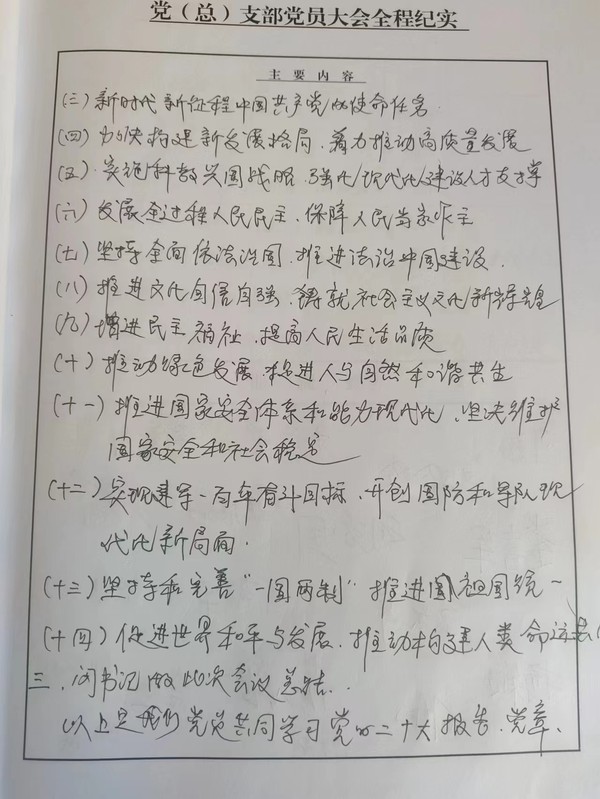 党（总）支部党员大会全程纪实
主要内容
（三）新时代新征程中国共产党的使命任务
（四）加快构建新发展格局、着力推动高质量发展
（五）实施科教兴国战略、强化现代化建设人才支撑
（六）发展全过程人民民主、保障人民当家作主
（七）坚持全面依法治国、推进法治中国建设、
（八）推进文化自信自强、铸就社会主义文化新辉煌
（九）增进民生福祉、提高人民生活品质
（十）推动绿色发展、促进人与自然和谐共生
（十一）推进国家安全体系和能力现代化、坚决维护
国家安全和社会稳定
（十二）实现建军一百年奋斗目标、开创国防和军队现
代化新局面.
（十三）坚持和完善“一国两制”推进祖国统一
（十四）促进世界和平与发展、推动构建人类命运共
三、闫书记做此次会议总结.
以上是我们党员共同学习党的二十大报告、党章、